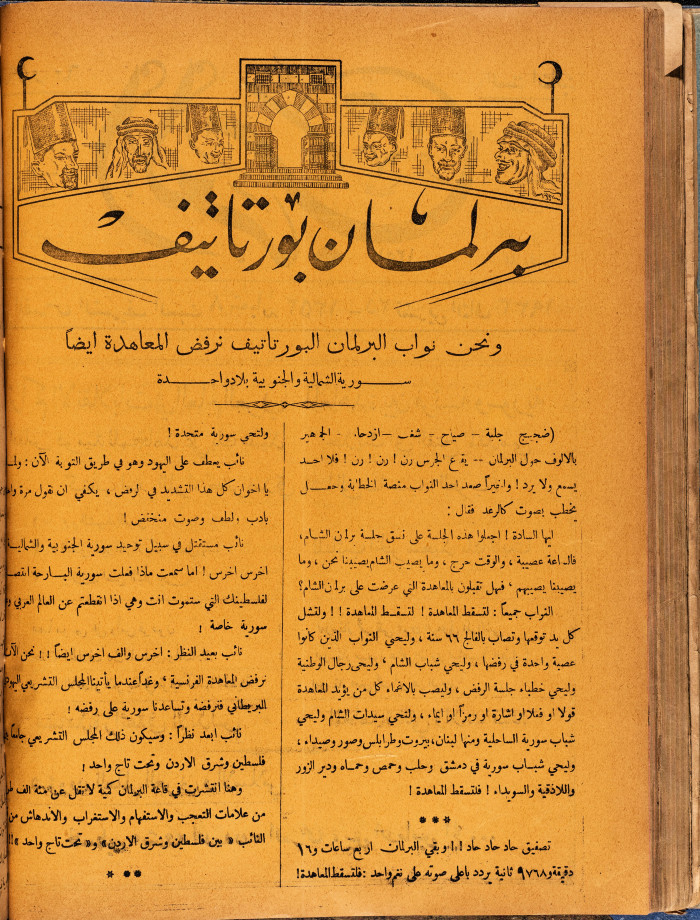 برلمان بورتاتيف
ونحن نواب البرلمان البورتاتيف نرفض المعاهدة ايضاً
سورية الشمالية والجنوبية بلاد واحدة
(ضجيج جلبة - صياح - شغب - ازدحام - الجماهير
بالالوف حول البرلمان -- يقرع الجرس رن ! رن ! رن ! فلا احد
يسمع ولا يرد ! واخيراً صعد احد النواب منصة الخطابة وجعل
يخطب بصوت كالرعد فقال :
ايها السادة ! اجعلوا هذه الجلسة على نسق جلسة برلمان الشام،
فالساعة عصيبة ، والوقت حرج ، وما يصيب الشام يصيبنا نحن ، وما
يصيبنا يصيبهم ' فهل تقبلون بالمعاهدة التي عرضت على برلمان الشام؟
النواب جميعاً : لتسقط المعاهدة ! لتسقط المعاهدة ! ! ولتشل
كل يد توقعها وتصاب بالفالج ٦٦ سنة ، وليحي النواب الذين كانوا
عصبة واحدة في رفضها ، وليحي شباب الشام ' وليحي رجال الوطنية
وليحي خطباء جلسة الرفض ، وليصب بالاغماء كل من يؤيد المعاهدة
قولا او فعلا او اشارة او رمزاً او ايماء ، ولتحي سيدات الشام وليحي
شباب سورية الساحلية ومنها لبنان، بيروت وطرابلس وصور وصيداء ،
وليحي شباب سورية في دمشق وحلب وحمص وحماه ودير الزور
واللاذقية والسويداء ! فلتسقط المعاهدة !
* * *
تصفيق حاد حاد حاد ! ! وبقي البرلمان اربع ساعات و١٦
دقيقة و٩٧٦٨ ثانية يردد باعلى صوته على نغم واحد : فلتسقط المعاهدة!
ولتحي سورية متحدة !
نائب يعطف على اليهود وهو في طريق التوبة الآن :
يا اخوان كل هذا التشديد في الرفض ، يكفي ان نقول مرة
بادب ولطف وصوت منخفض !
نائب مستقتل في سبيل توحيد سورية الجنوبية والشمالية
اخرس اخرس ! اما سمعت ماذا فعلت سورية البارحة
لفلسطينك التي ستموت انت وهي اذا انقطعتم عن العالم العربي
سورية خاصة !
نائب بعيد النظر : اخرس والف اخرس ايضاً ! ! نحن
نرفض المعاهدة الفرنسية ' وغداً عندما يأتينا المجلس التشريعي
البريطاني فنرفضه وتساعدنا سورية على رفضه !
نائب ابعد نظراً : وسيكون ذلك المجلس التشريعي جامعاً
فلسطين وشرق الاردن وتحت تاج واحد !
وهنا انتشرت في قاعة البرلمان كمية لا تقل عن مئة الف
من علامات التعجب والاستفهام والاستغراب والاندهاش من
النائب « بين فلسطين وشرق الاردن» و« تحت تاج واحد »!!
* * *